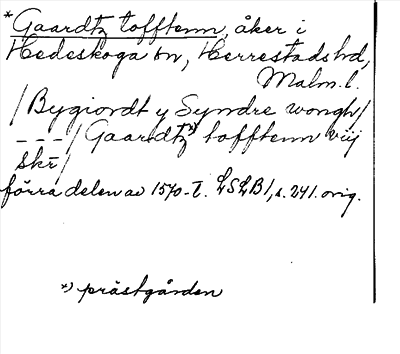 *Gaardtz tofftenn, åker i
Hedeskoga sn, Herrestads hd,
Malm. l.
/Bygiordt y Syndre wongh/
---/Gaardtz*) tofftenn viij
skr/
förra delen av 1570-t. LSLB1, s. 241. orig.
*) prästgården